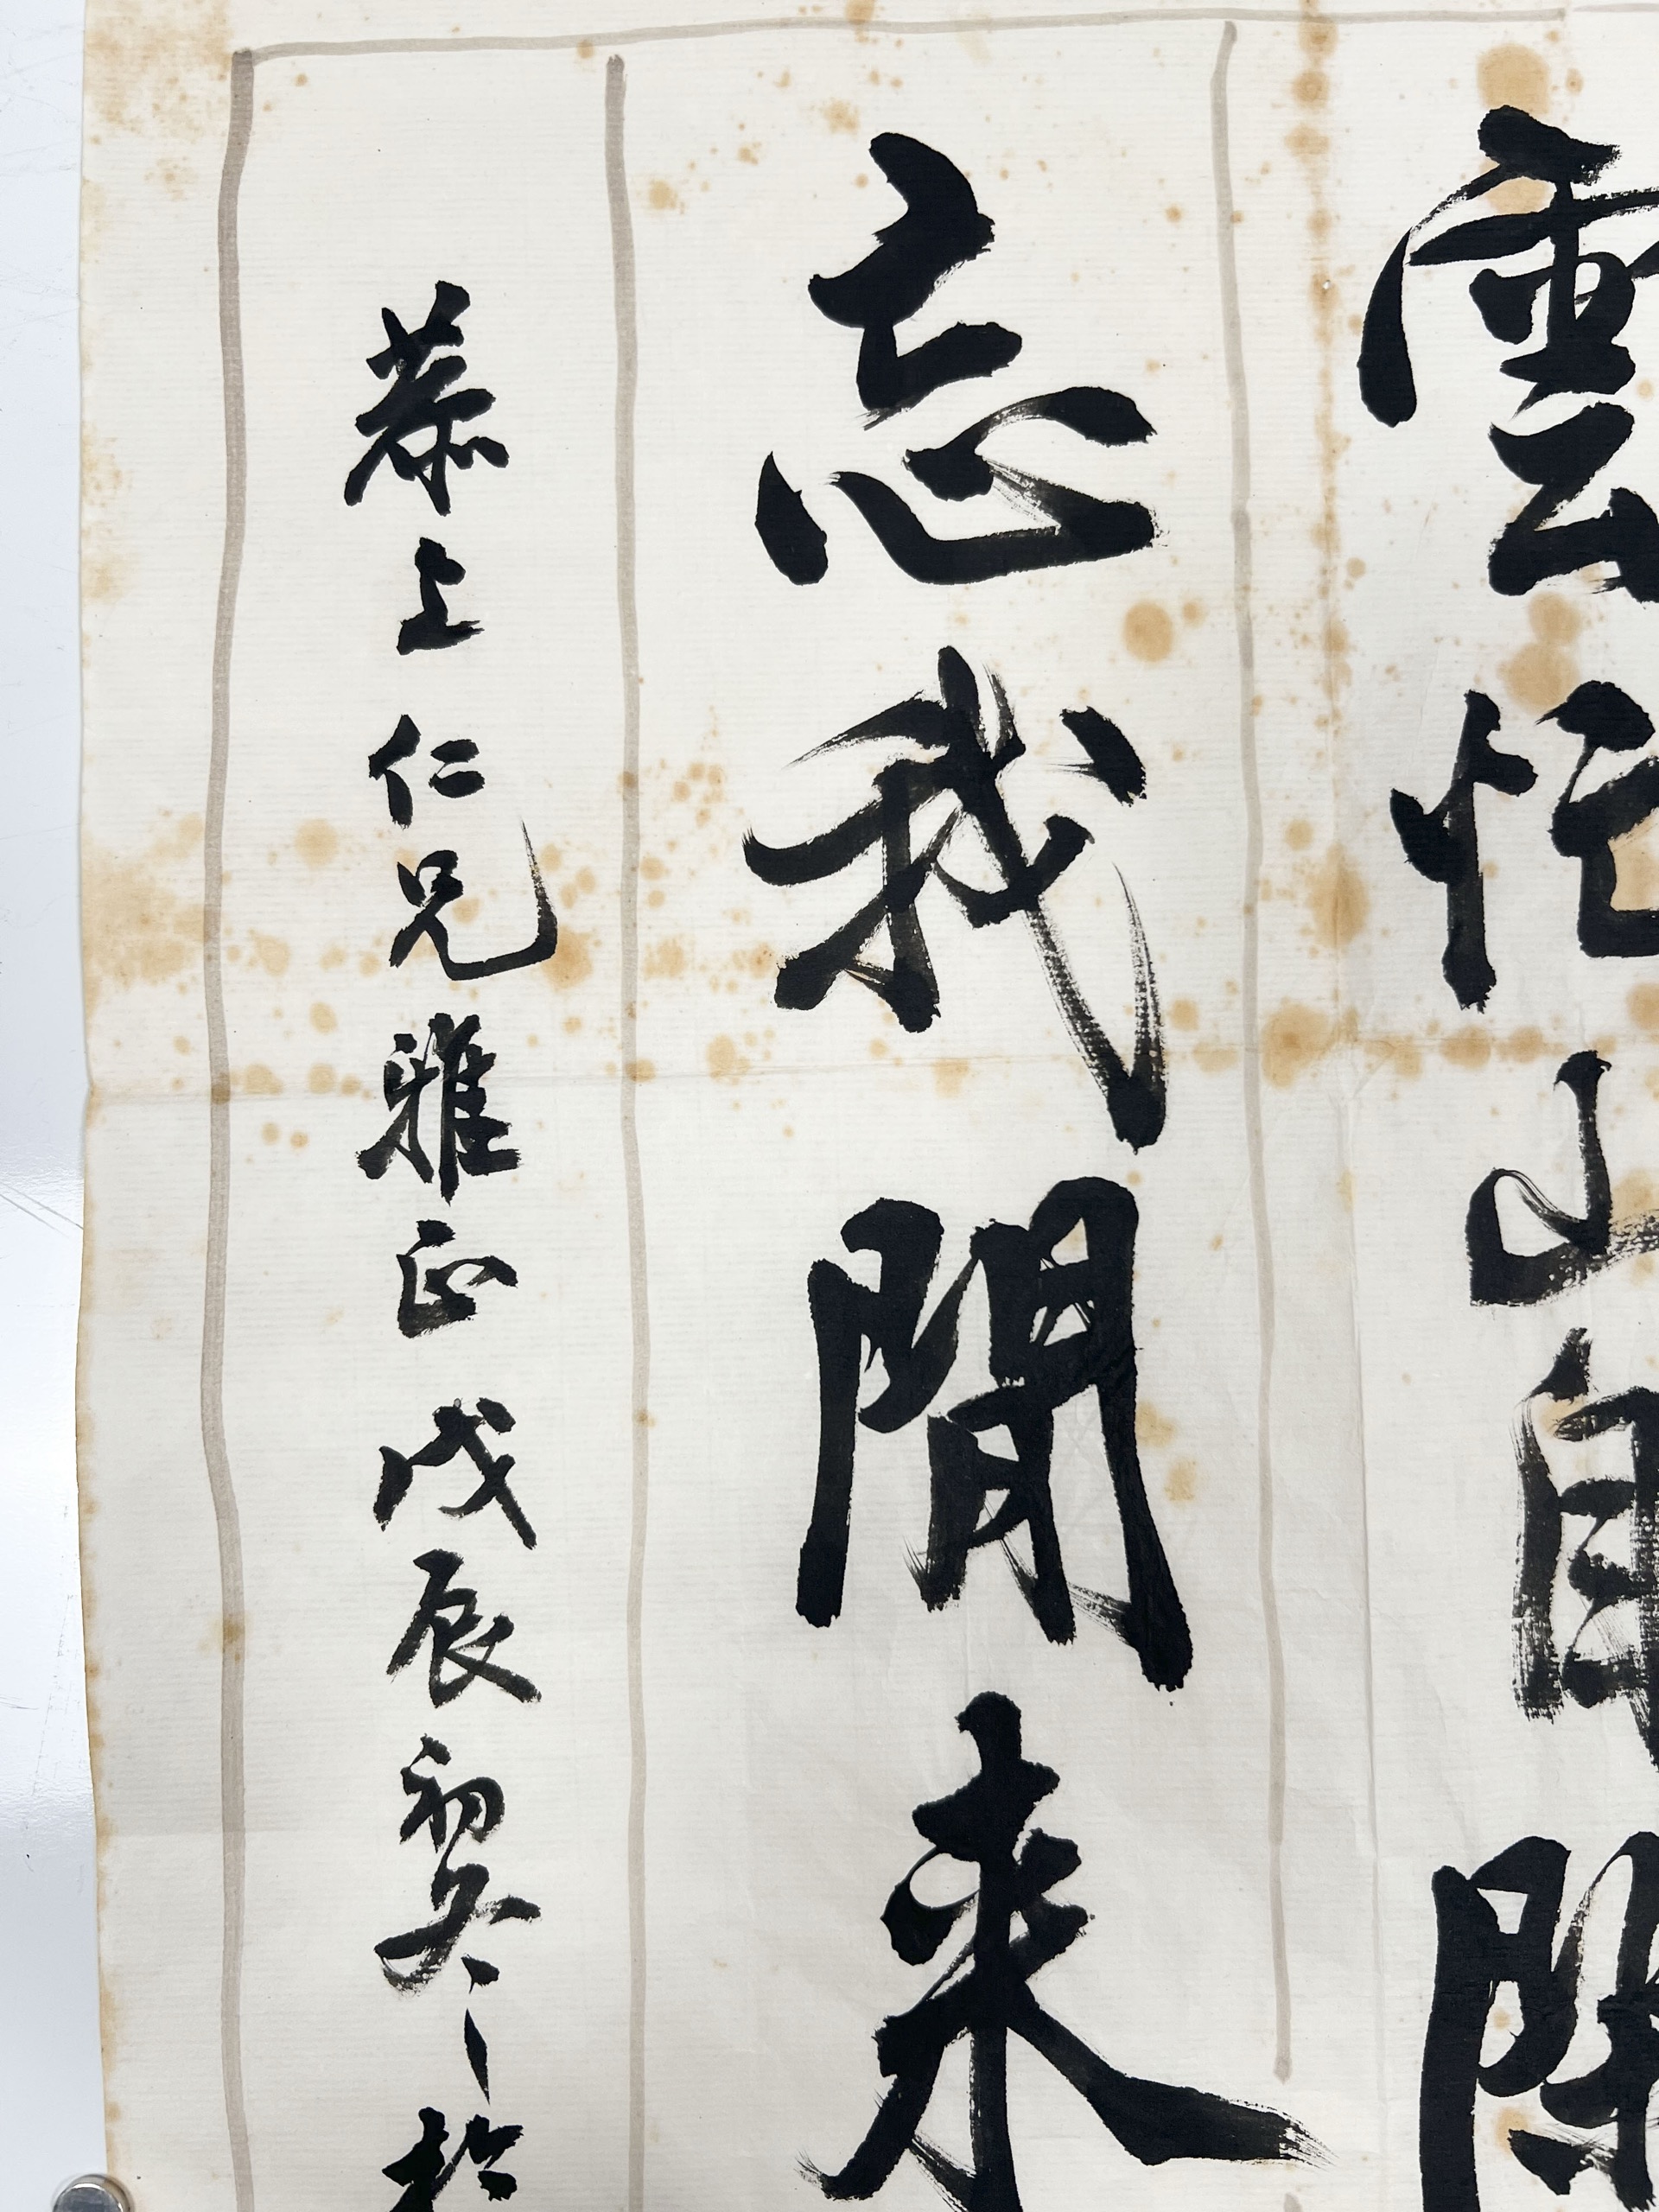 雲忙山自閑
忘我閒来
恭上仁兄雅正戊辰初冬於